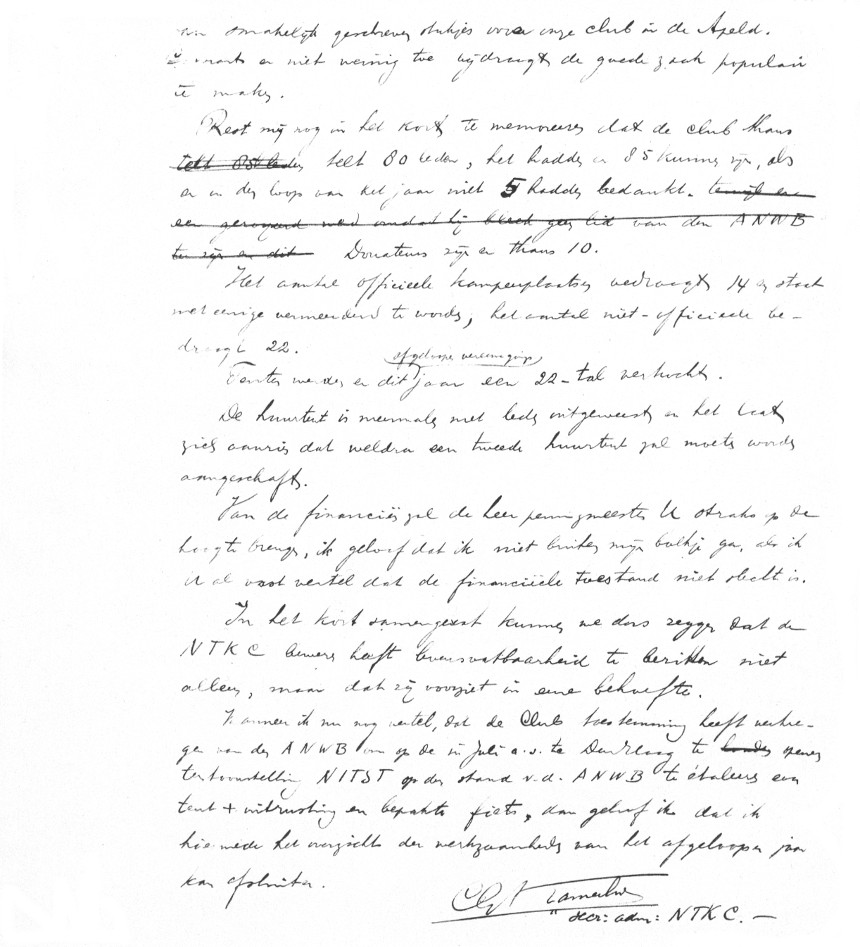 smakelijk geschreven stukjes voor onze club in de Apeld.
Crt. er niet weinig toe bijdraagt de goede zaak populair
te maken.
Rest mij nog in het kort te memoreeren dat de club thans
telt 80 leden telt 80 leden, het hadden er 85 kunnen zijn, als
er in den loop van het jaar niet 5 hadden bedankt. terwijl er
een geroyeerd werd omdat hij bleek geen lid van den ANWB
te zijn en dit Donateurs zijn er thans 10.
Het aantal officieele kampeerplaatsen bedraagt 14 en staat
met eenige vermeerderd te worden, het aantal niet-officieele be-
draagt 22.
afgeloopen vereenigings
Tenten werden er dit jaar een 22-tal verkocht.
De huurtent is meermalen met leden uitgeweest en het laat
zich aanzien dat weldra een tweede huurtent zal moeten worden
aangeschaft.
Van de financiën zal de heer penningmeester U straks op de
hoogte brengen, ik geloof dat ik niet buiten mijn boekje ga, als ik
U al vast vertel dat de financiëele toestand niet slecht is.
In het kort samengevat kunnen we dus zeggen dat de
NTKC bewezen heeft levensvatbaarheid te bezitten niet
alleen, maar dat zij voorziet in eene behoefte.
Wanneer ik nu nog vertel, dat de Club toestemming heeft verkre-
gen van den ANWB om op de in Juli a.s. te te houden openen
tentoonstelling NITST op den stand v.d. ANWB te étaleeren een
tent + uitrusting en bepakte fiets, dan geloof ik dat ik
hiermede het overzicht der werkzaamheden van het afgeloopen jaar
kan afsluiten.
secr: adm: NTKC. —